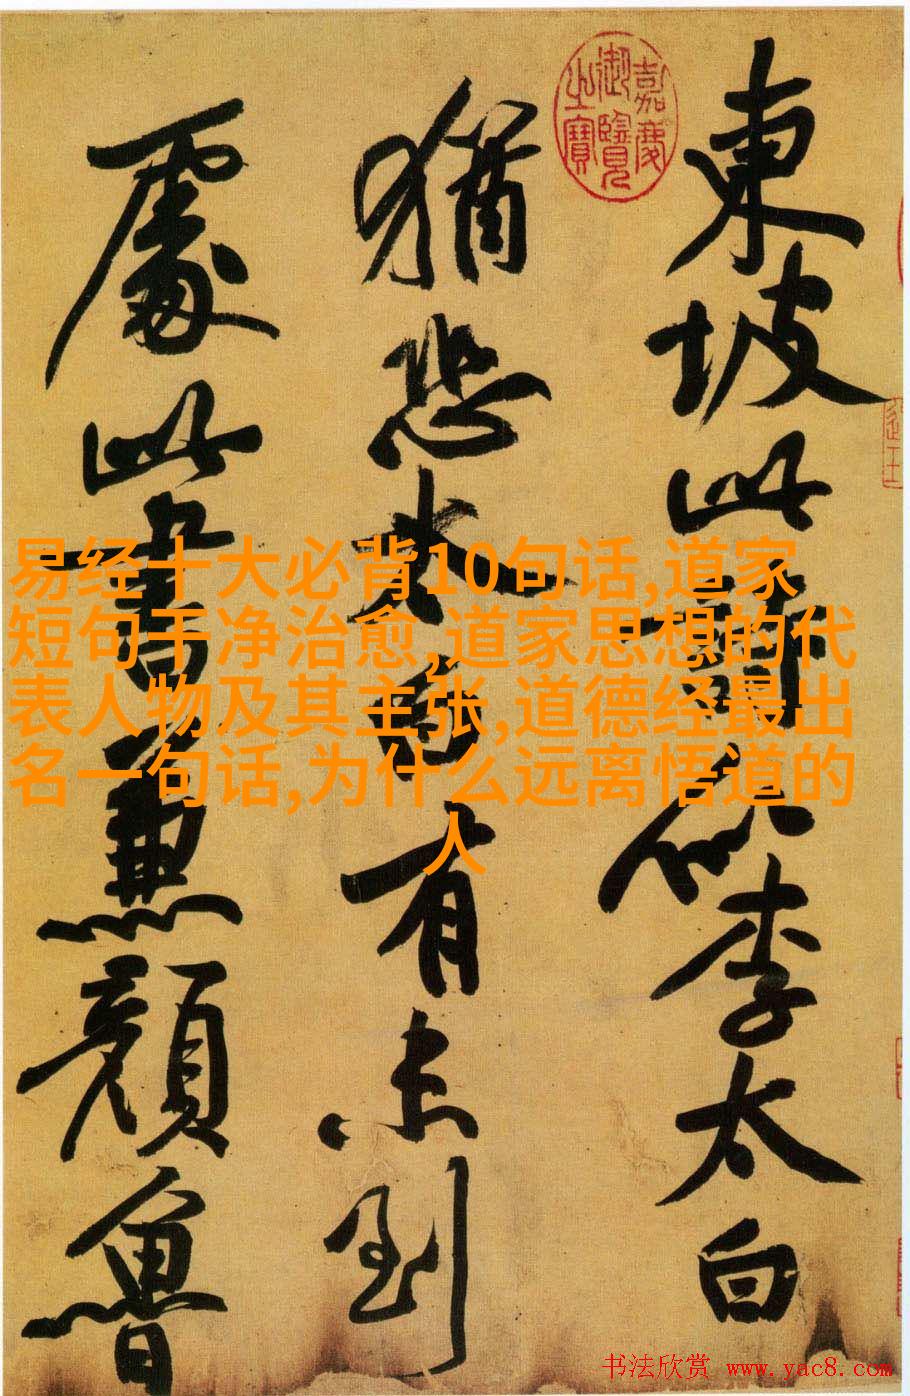 東坡此詩似李太白
猶恐太白有未到
處此書兼顏魯
嘉慶
御覽
之寶
易经十大必背10句话,道家
短句干净治愈,道家思想的代
表人物及其主张,道德经最出
名一句话,为什么远离悟道的
人
书法欣赏 www.yac8.com